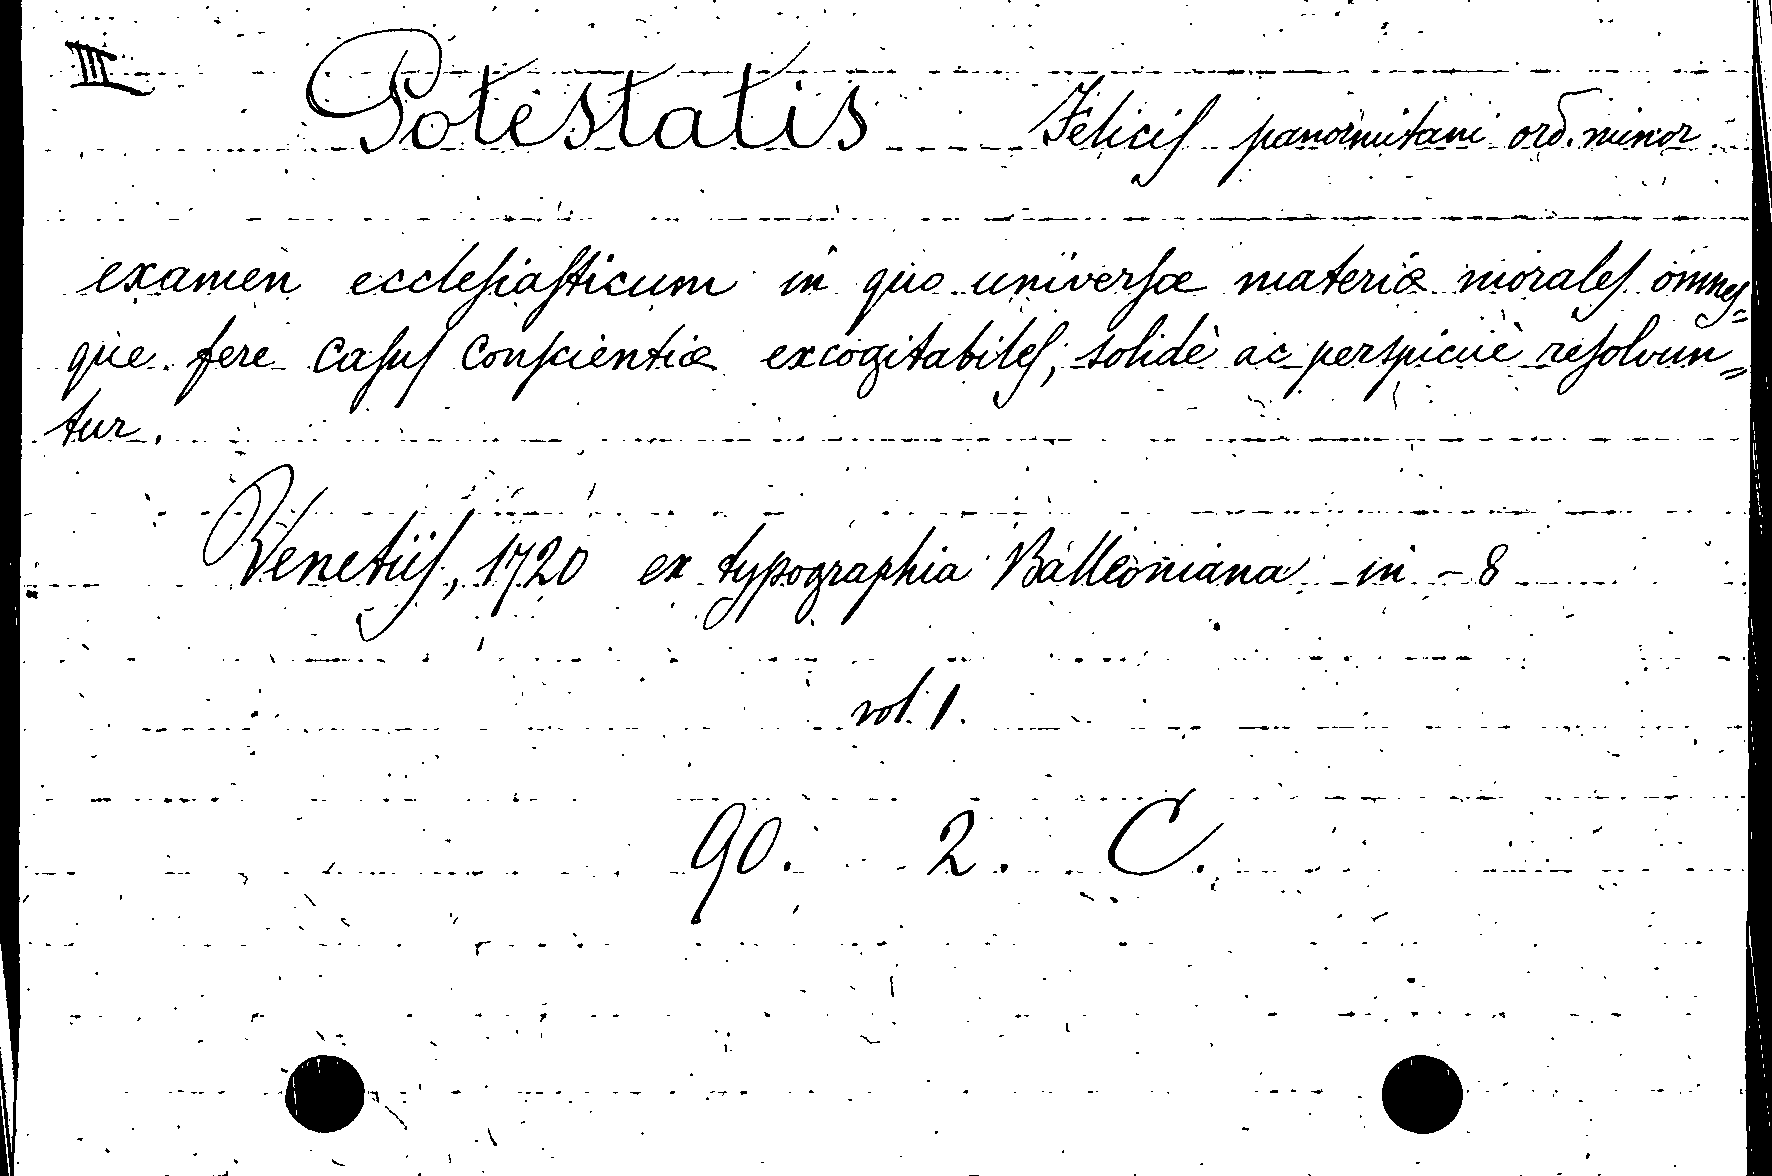 III
Potestatis Felicis panormitani ord. minor.
examen ecclesiasticum in quo universæ materiæ morales omnes=
que fere casus conscientiæ excogitabiles, solidè ac perspicuè resolvun=
tur.
Venetiis, 1720 ex typographia Balleoniana in-8
vol. 1.
90. 2. C.